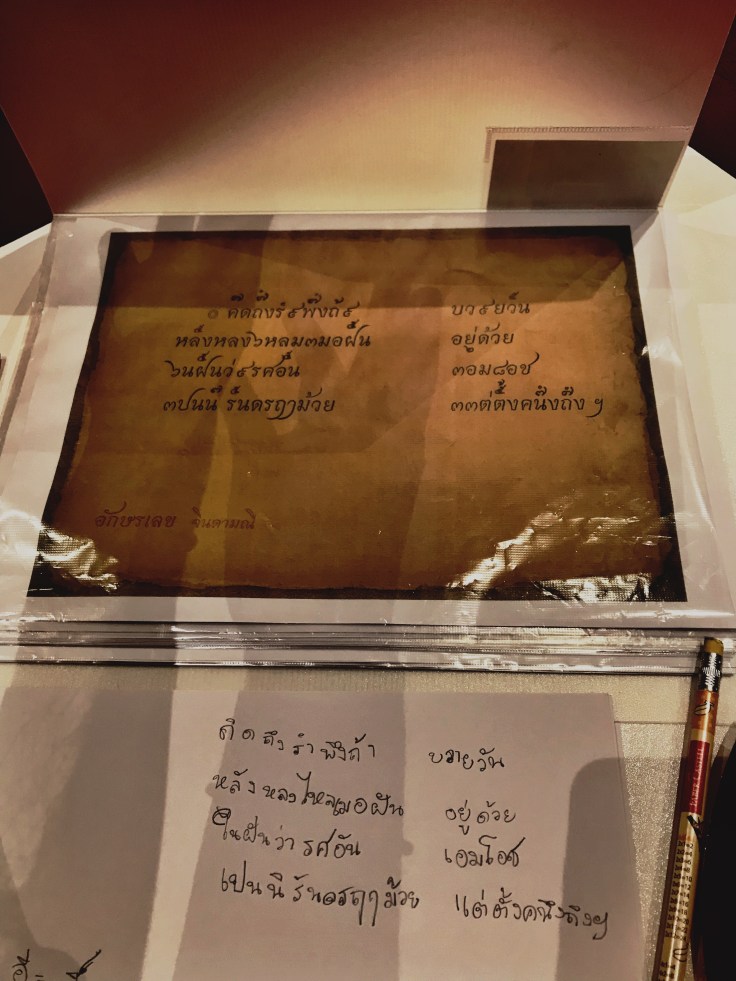 ๏ คึดถึ้งรํ๙พึ๊งถ้๙ บา๙ยวั๋น
หลั๋งหลง๖หลม๓มอฝั๋น อยู่ด้วย
๖นฝั๋นว่๙รศอั๋น ๓อม๘อช
๓ปนนี๋ รั๋นดรฤๅม้วย ๓๓ต่ตั๋้งคนึ๋งถึ๋ง ฯ
อักษรเลข จินดามณี
คิดถึงรำพึงถ้า บาายวัน
หลังหลงไหลเมอฝัน อยู่ด้วย
ในฝันว่า รศอัน เอมโอช
เปนนิรันดรฤๅม้วย แต่ตั้งคนึงถึงฯ